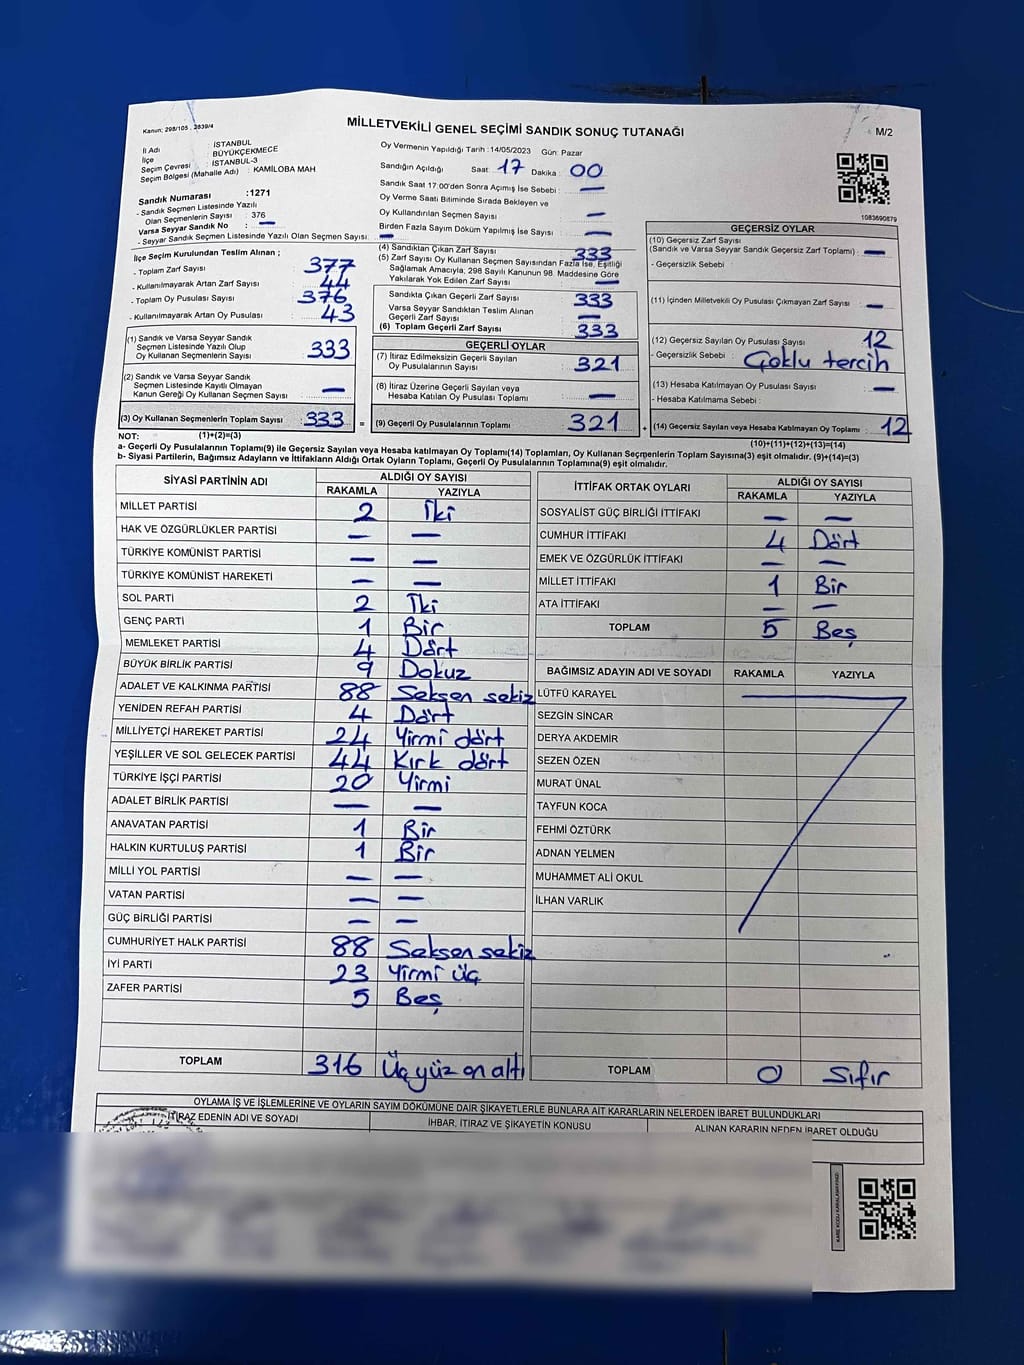 Kanun: 298/105 , 2839/4
MİLLETVEKİLİ GENEL SEÇİMİ SANDIK SONUÇ TUTANAĞI
M/2
İl Adı : İSTANBUL
İlçe : BÜYÜKÇEKMECE
Seçim Çevresi : İSTANBUL-3
Seçim Bölgesi (Mahalle Adı) : KAMİLOBA MAH
Oy Vermenin Yapıldığı Tarih : 14/05/2023 Gün: Pazar
Sandığın Açıldığı Saat: 17 Dakika : 00
Sandık Saat 17:00'den Sonra Açımış İse Sebebi : —
Oy Verme Saati Bitiminde Sırada Bekleyen ve
Oy Kullandırılan Seçmen Sayısı : —
Birden Fazla Sayım Döküm Yapılmış İse Sayısı : —
1083690879
Sandık Numarası :1271
- Sandık Seçmen Listesinde Yazılı
Olan Seçmenlerin Sayısı : 376
Varsa Seyyar Sandık No : —
- Seyyar Sandık Seçmen Listesinde Yazılı Olan Seçmen Sayısı: —
İlçe Seçim Kurulundan Teslim Alınan ;
- Toplam Zarf Sayısı : 377
- Kullanılmayarak Artan Zarf Sayısı : 44
- Toplam Oy Pusulası Sayısı : 376
- Kullanılmayarak Artan Oy Pusulası : 43
(1) Sandık ve Varsa Seyyar Sandık
Seçmen Listesinde Yazılı Olup
Oy Kullanan Seçmenlerin Sayısı : 333
(2) Sandık ve Varsa Seyyar Sandık
Seçmen Listesinde Kayıtlı Olmayan
Kanun Gereği Oy Kullanan Seçmen Sayısı : —
(3) Oy Kullanan Seçmenlerin Toplam Sayısı : 333 =
(1)+(2)=(3)
(4) Sandıktan Çıkan Zarf Sayısı : 333
(5) Zarf Sayısı Oy Kullanan Seçmen Sayısından Fazla İse, Eşitliği
Sağlamak Amacıyla, 298 Sayılı Kanunun 98. Maddesine Göre
Yakılarak Yok Edilen Zarf Sayısı : —
Sandıkta Çıkan Geçerli Zarf Sayısı : 333
Varsa Seyyar Sandıktan Teslim Alınan
Geçerli Zarf Sayısı : —
(6) Toplam Geçerli Zarf Sayısı : 333
GEÇERLİ OYLAR
(7) İtiraz Edilmeksizin Geçerli Sayılan
Oy Pusulalarının Sayısı : 321
(8) İtiraz Üzerine Geçerli Sayılan veya
Hesaba Katılan Oy Pusulası Toplamı : —
(9) Geçerli Oy Pusulalarının Toplamı : 321 +
GEÇERSİZ OYLAR
(10) Geçersiz Zarf Sayısı
(Sandık ve Varsa Seyyar Sandık Geçersiz Zarf Toplamı) : —
- Geçersizlik Sebebi :
(11) İçinden Milletvekili Oy Pusulası Çıkmayan Zarf Sayısı : —
(12) Geçersiz Sayılan Oy Pusulası Sayısı : 12
- Geçersizlik Sebebi : Çoklu tercih
(13) Hesaba Katılmayan Oy Pusulası Sayısı : —
- Hesaba Katılmama Sebebi :
(14) Geçersiz Sayılan veya Hesaba Katılmayan Oy Toplamı : 12
(10)+(11)+(12)+(13)=(14)
NOT:
a- Geçerli Oy Pusulalarının Toplamı(9) ile Geçersiz Sayılan veya Hesaba katılmayan Oy Toplamı(14) Toplamları, Oy Kullanan Seçmenlerin Toplam Sayısına(3) eşit olmalıdır. (9)+(14)=(3)
b- Siyasi Partilerin, Bağımsız Adayların ve İttifakların Aldığı Ortak Oyların Toplamı, Geçerli Oy Pusulalarının Toplamına(9) eşit olmalıdır.
SİYASİ PARTİNİN ADI ALDIĞI OY SAYISI
RAKAMLA YAZIYLA
MİLLET PARTİSİ 2 İki
HAK VE ÖZGÜRLÜKLER PARTİSİ — —
TÜRKİYE KOMÜNİST PARTİSİ — —
TÜRKİYE KOMÜNİST HAREKETİ — —
SOL PARTİ 2 İki
GENÇ PARTİ 1 Bir
MEMLEKET PARTİSİ 4 Dört
BÜYÜK BİRLİK PARTİSİ 9 Dokuz
ADALET VE KALKINMA PARTİSİ 88 Seksen sekiz
YENİDEN REFAH PARTİSİ 4 Dört
MİLLİYETÇİ HAREKET PARTİSİ 24 Yirmi dört
YEŞİLLER VE SOL GELECEK PARTİSİ 44 Kırk dört
TÜRKİYE İŞÇİ PARTİSİ 20 Yirmi
ADALET BİRLİK PARTİSİ — —
ANAVATAN PARTİSİ 1 Bir
HALKIN KURTULUŞ PARTİSİ 1 Bir
MİLLİ YOL PARTİSİ — —
VATAN PARTİSİ — —
GÜÇ BİRLİĞİ PARTİSİ — —
CUMHURİYET HALK PARTİSİ 88 Seksen sekiz
İYİ PARTİ 23 Yirmi üç
ZAFER PARTİSİ 5 Beş
TOPLAM 316 Üç yüz on altı
İTTİFAK ORTAK OYLARI ALDIĞI OY SAYISI
RAKAMLA YAZIYLA
SOSYALİST GÜÇ BİRLİĞİ İTTİFAKI — —
CUMHUR İTTİFAKI 4 Dört
EMEK VE ÖZGÜRLÜK İTTİFAKI — —
MİLLET İTTİFAKI 1 Bir
ATA İTTİFAKI — —
TOPLAM 5 Beş
BAĞIMSIZ ADAYIN ADI VE SOYADI RAKAMLA YAZIYLA
LÜTFÜ KARAYEL
SEZGİN SİNCAR
DERYA AKDEMİR
SEZEN ÖZEN
MURAT ÜNAL
TAYFUN KOCA
FEHMİ ÖZTÜRK
ADNAN YELMEN
MUHAMMET ALİ OKUL
İLHAN VARLIK
TOPLAM 0 Sıfır
OYLAMA İŞ VE İŞLEMLERİNE VE OYLARIN SAYIM DÖKÜMÜNE DAİR ŞİKAYETLERLE BUNLARA AİT KARARLARIN NELERDEN İBARET BULUNDUKLARI
İTİRAZ EDENİN ADI VE SOYADI İHBAR, İTİRAZ VE ŞİKAYETİN KONUSU ALINAN KARARIN NEDEN İBARET OLDUĞU